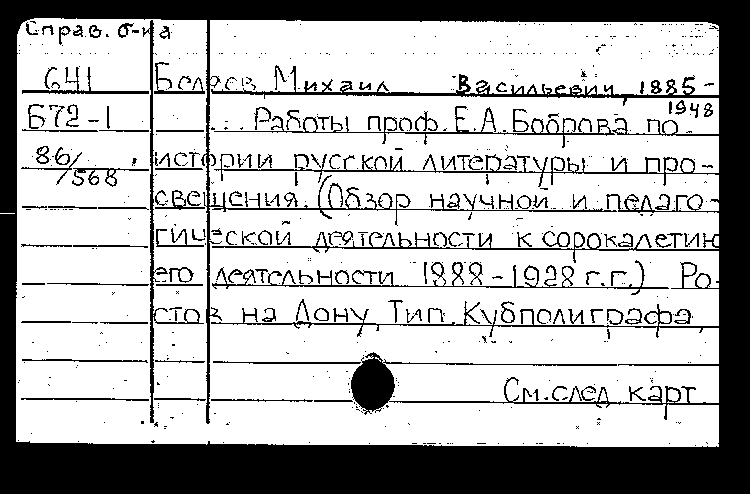 Справ. б-ка
641 Беляев, Михаил Васильевич, 1885-
1948
Б72-1 ... Работы проф. Е.А. Боброва по
86/568 истории русской литературы и про-
свещения. (Обзор научной и педаго-
гической деятельности к сорокалетию
его деятельности 1888-1928 г.г.) Ро-
стов на Дону, Тип. Кубполиграфа,
См. след карт.